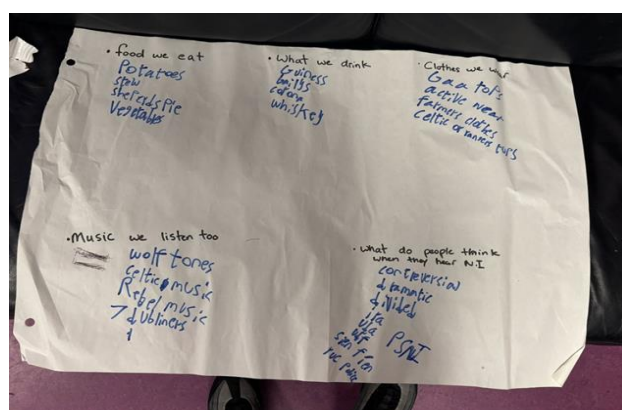 · food we eat
Potatoes
stew
sheferds Pie
Vegetables
· What we drink
Guiness
baileys
corona
whiskey
· Clothes we wear
Gaa tops
active wear
farmers clothes
celtic or rangers tops
· Music we listen too
wolf tones
celtic music
Rebel music
dubliners
· what do people think
when they hear N.I
contreversial
dramatic
divided
ira
uda
uvf
sen fien
PSNI
ruc police